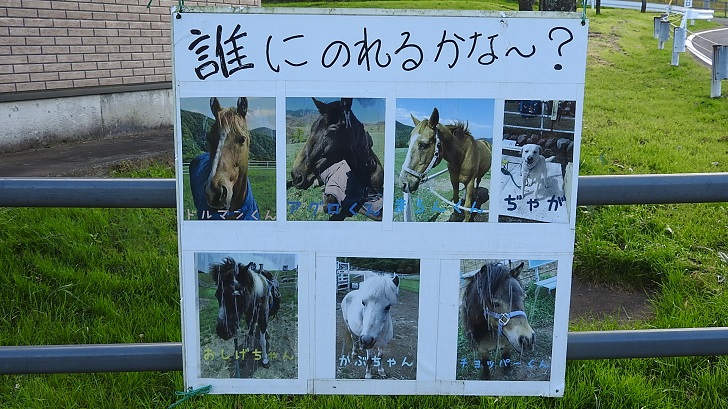 誰にのれるかな～?
ドルマンくん
ぢゃが
おしげちゃん
かぶちゃん
チョッパーくん